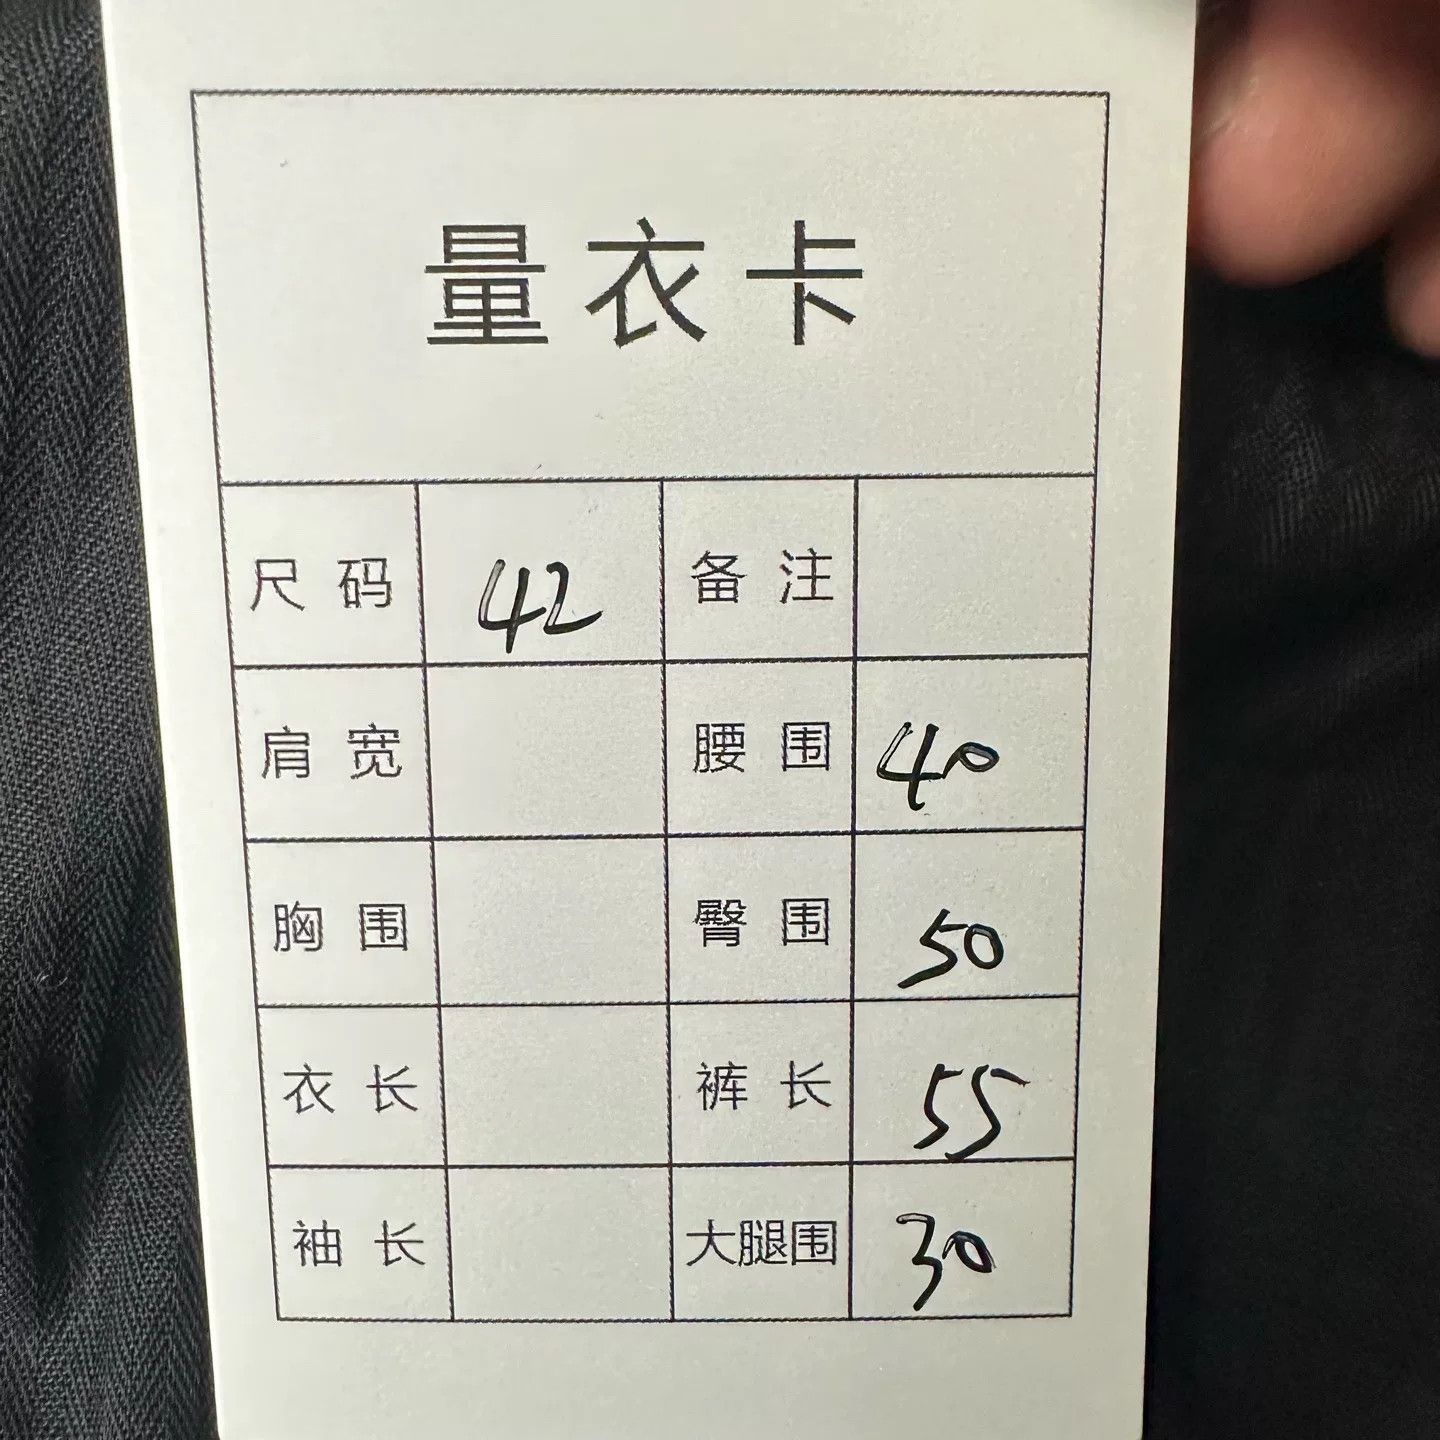 量衣卡
尺码 42 备注
肩宽 腰围 40
胸围 臀围 50
衣长 裤长 55
袖长 大腿围 30